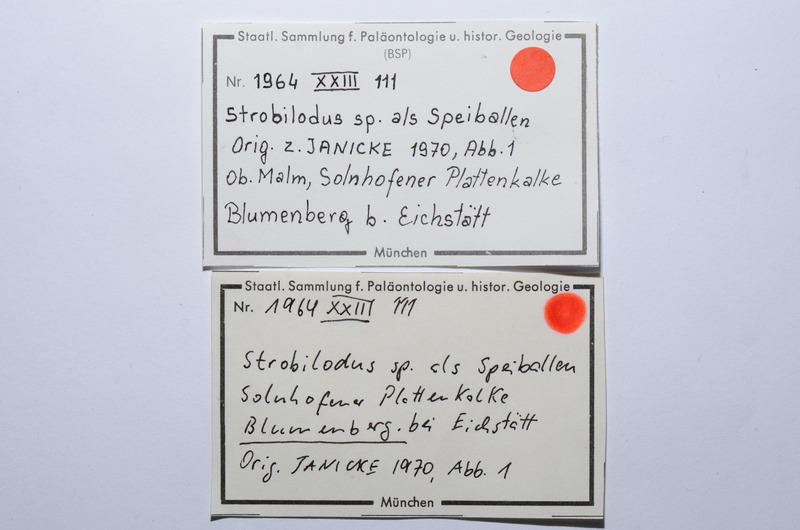 Staatl. Sammlung f. Paläontologie u. histor. Geologie
(BSP)
Nr. 1964 XXIII 111
Strobilodus sp. als Speiballen
Orig. z. JANICKE 1970, Abb. 1
Ob. Malm, Solnhofener Plattenkalke
Blumenberg b. Eichstätt
München
Staatl. Sammlung f. Paläontologie u. histor. Geologie
Nr. 1964 XXIII 111
Strobilodus sp. als Speiballen
Solnhofener Plattenkalke
Blumenberg. bei Eichstätt
Orig. JANICKE 1970, Abb. 1
München